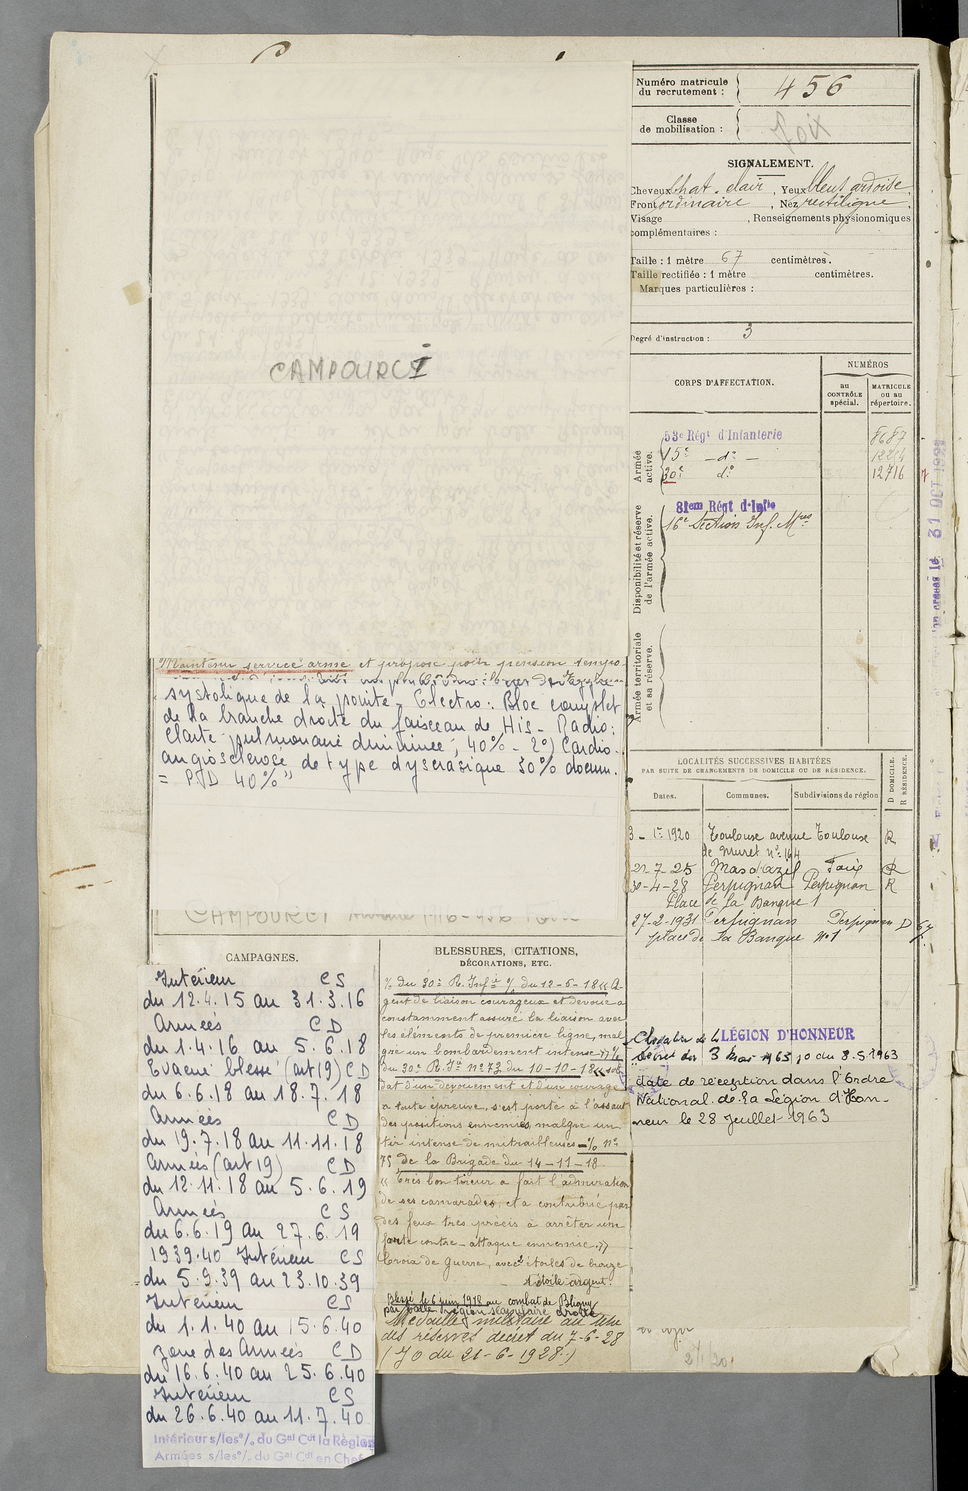 Numéro matricule
du recrutement :
456
Classe
de mobilisation :
Foix
SIGNALEMENT.
Cheveux chat. clair, Yeux bleus ardoise,
Front ordinaire, Nez rectiligne,
Visage , Renseignements physionomiques
complémentaires :
Taille : 1 mètre 67 centimètres.
Taille rectifiée : 1 mètre centimètres.
Marques particulières :
Degré d'instruction : 3
CAMPOURCI
CORPS D'AFFECTATION.
NUMÉROS
au
CONTRÔLE
spécial.
MATRICULE
ou au
répertoire.
Armée
active.
53e Régt d'Infanterie 8687
15e - do -
30e do 12716
Disponibilité et réserve
de l'armée active.
81eme Régt d'Infie
16e Section Inf. Mres
Armée territoriale
et sa réserve.
31 OCT 1921
Maintenu service armé et proposé pour pension tempo-
systolique de la pointe - Electro : Bloc complet
de la branche droite du faisceau de His - Radio :
Clarté pulmonaire diminuée ; 40% - 2°) Cardio-
angiosclérose de type dyscrasique 30% docum.
= PJD 40%"
CAMPOURCI
LOCALITÉS SUCCESSIVES HABITÉES
PAR SUITE DE CHANGEMENTS DE DOMICILE OU DE RÉSIDENCE.
Dates. Communes. Subdivisions de région
D DOMICILE.
R RÉSIDENCE.
3 - 1r 1920 Toulouse avenue Toulouse R
de Muret n° 164
21-7-25 Mas d'azil Foix R
30-4-28 Perpignan Perpignan R
Place de la Banque 1
27-2-1931 Perpignan Perpignan D
place de la Banque n°1
Chevalier de la LÉGION D'HONNEUR
Décret du 3 Mai 1963 J O du 8.5.1963
date de réception dans l'Ordre
National de la Légion d'Hon-
neur le 28 Juillet 1963
CAMPAGNES.
Intérieur CS
du 12.4.15 au 31.3.16
Armées CD
du 1.4.16 au 5.6.18
Evacué blessé (art 19) CD
du 6.6.18 au 18.7.18
Armées CD
du 19.7.18 au 11.11.18
Armées (art 19) CD
du 12.11.18 au 5.6.19
Armées CS
du 6.6.19 au 27.6.19
1939.40 Intérieur CS
du 5.9.39 au 23.10.39
Intérieur CS
du 1.1.40 au 15.6.40
zone des Armées CD
du 16.6.40 au 25.6.40
Intérieur CS
du 26.6.40 au 11.7.40
Intérieur s/les °/. du Gal Cdt la Région
Armées s/les °/. du Gal Cdt en Chef
BLESSURES, CITATIONS,
DÉCORATIONS, ETC.
% du 30e R. Infie % du 12-6-18 « A-
gent de liaison courageux et dévoué a
constamment assuré la liaison avec
les éléments de première ligne, mal-
gré un bombardement intense »
du 30e R. Ie n° 73 du 10-10-18 « sol-
dat d'un dévouement et d'un courage
à toute épreuve, s'est porté à l'assaut
des positions ennemies, malgré un
tir intense de mitrailleuses - % n°
75 de la Brigade du 14-11-18
« Très bon tireur a fait l'admiration
de ses camarades, et a contribué par
des feux très précis à arrêter une
forte contre-attaque ennemie. »
Croix de Guerre, avec 2 étoiles de bronze
1 étoile argent.
Blessé le 6 juin 1918 au combat de Bligny
par balle région scapulaire droite
Médaille militaire au titre
des réserves décret du 7-6-28
(JO du 21-6-1928.)